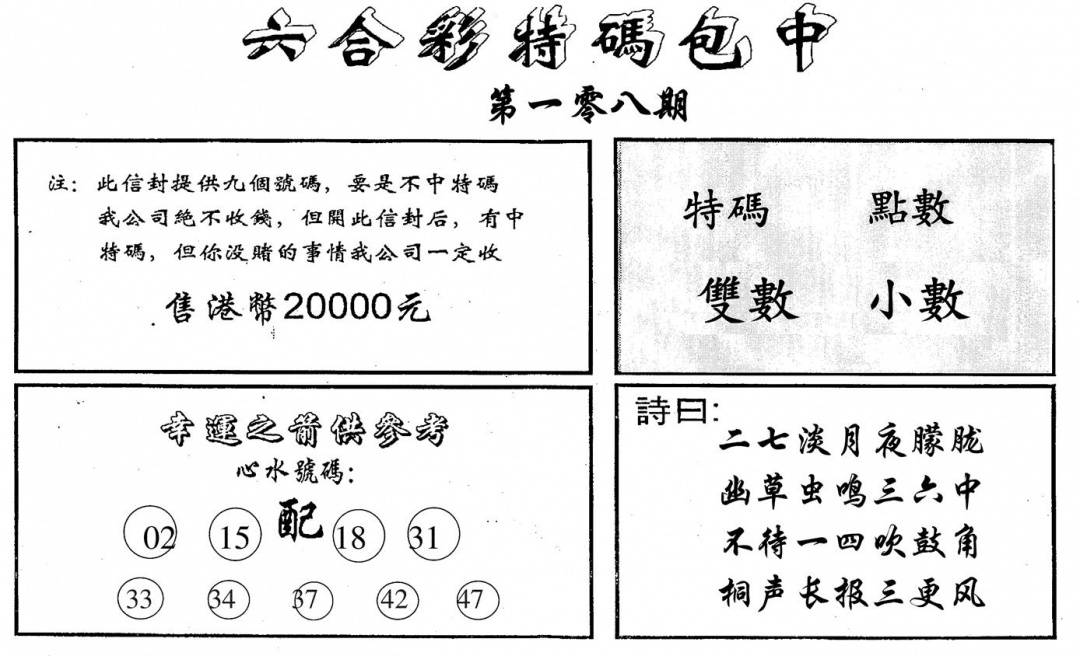 六合彩特碼包中
第一零八期
注：此信封提供九個號碼，要是不中特碼
我公司絕不收錢，但開此信封后，有中
特碼，但你没賭的事情我公司一定收
售港幣20000元
特碼 點數
雙數 小數
幸運之箭供參考
心水號碼：
02 15 配 18 31
33 34 37 42 47
詩曰：
二七淡月夜朦胧
幽草虫鸣三六中
不待一四吹鼓角
桐声长报三更风